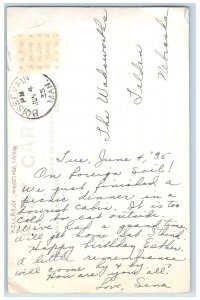 BOISSEVAIN
PM
JUN 4
35
MAN.
The Wadsworths
Tilden
Nebraska
CARD
Tue, June 4, '35
On Foreign Soil!
We just finished a
picnic dinner in a
tourist cabin. It is too
cold to eat outside.
We've had a grand time
Will get home Sat. I think
Happy birthday Esther
A little remembrance
will come by & by.
How are you all?
Love, Lena